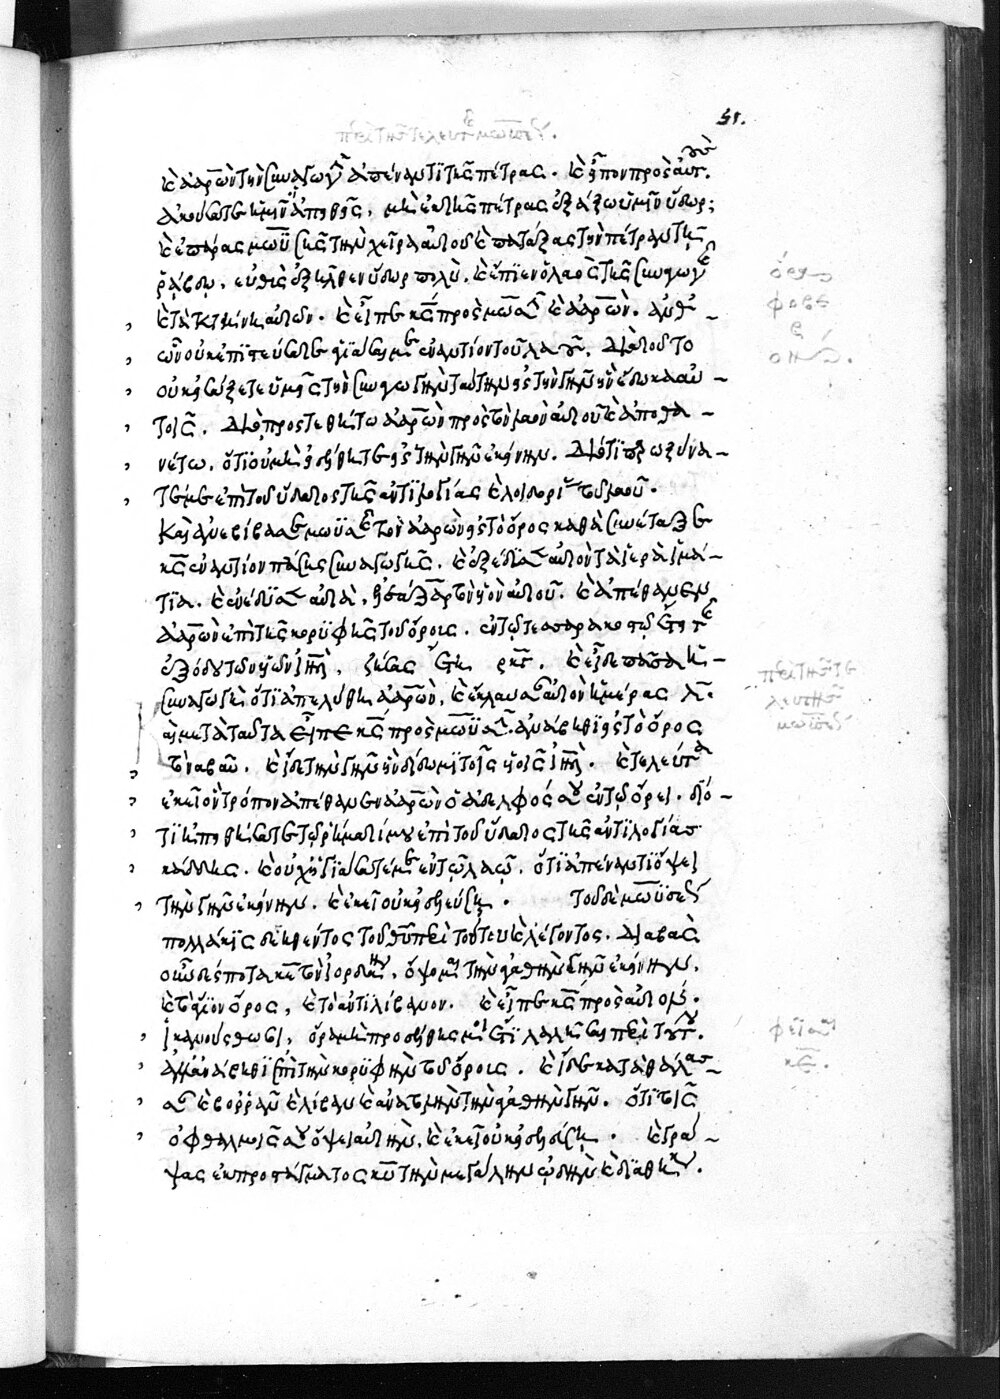 περὶ τῆς τελευτῆς μωϋσέως.
51.
καὶ ἀαρὼν τὴν συναγωγὴν ἀπέναντι τῆς πέτρας. καὶ εἶπον πρὸς αὐτούς.
ἀκούσατε ἡμῶν ἀπειθεῖς, μὴ ἐκ τῆς πέτρας ἐξάξω ὑμῖν ὕδωρ;
καὶ ἐπάρας μωϋσῆς τὴν χεῖρα αὐτοῦ καὶ πατάξας τὴν πέτραν τῇ
ῥάβδῳ, εὐθὺς ἐξῆλθεν ὕδωρ πολὺ. καὶ ἔπιεν ὁ λαὸς τῆς συναγωγῆς
καὶ τὰ κτήνη αὐτῶν. καὶ εἶπε κύριος πρὸς μωσῆν καὶ ἀαρὼν. ἀνθ᾽
ὧν οὐκ ἐπιστεύσατε ἁγιάσαι με ἐναντίον τοῦ λαοῦ. διὰ τοῦτο
οὐκ εἰσάξετε ὑμεῖς τὴν συναγωγὴν ταύτην εἰς τὴν γῆν ἣν ἔδωκα αὐ
τοῖς. διὸ προστεθήτω ἀαρὼν πρὸς τὸν λαὸν αὐτοῦ καὶ ἀποθα
νέτω. ὅτι οὐ μὴ εἰσέλθητε εἰς τὴν γῆν ἐκείνην. διότι παρωξύνα
τέ με ἐπὶ τοῦ ὕδατος τῆς ἀντιλογίας καὶ λοιδορίας τοῦ λαοῦ.
Καὶ ἀνεβίβασε μωϋσῆς τὸν ἀαρὼν εἰς τὸ ὄρος καθὰ συνέταξε
κύριος ἐναντίον πάσης συναγωγῆς. καὶ ἐξέδυσεν αὐτὸν τὰ ἱερὰ ἱμά
τια. καὶ ἐνέδυσεν αὐτὰ, ἐλεάζαρ τὸν υἱὸν αὐτοῦ. καὶ ἀπέθανεν
ἀαρὼν ἐπὶ τῆς κορυφῆς τοῦ ὄρους. ἐν τῷ τεσσαρακοστῷ ἔτει τῆς
ἐξόδου τῶν υἱῶν ἰσραὴλ, ζήσας ἔτη ρκγ. καὶ εἶδε πᾶσα ἡ
συναγωγὴ ὅτι ἀπελύθη ἀαρὼν, καὶ ἔκλαυσαν αὐτὸν ἡμέρας λ.
Καὶ μετὰ ταῦτα εἶπε κύριος πρὸς μωϋσῆν. ἀνάβηθι εἰς τὸ ὄρος
τὸ ναβαῦ. καὶ ἴδε τὴν γῆν ἣν δίδωμι τοῖς υἱοῖς ἰσραὴλ. καὶ τελεύτα
ἐκεῖ ὃν τρόπον ἀπέθανεν ἀαρὼν ὁ ἀδελφός σου ἐν τῷ ὄρει. διό
τι ἠπειθήσατε τῷ ῥήματί μου ἐπὶ τοῦ ὕδατος τῆς ἀντιλογίας
κάδδης. καὶ οὐχ ἡγιάσατέ με ἐν τῷ λαῷ. ὅτι ἀπέναντι ὄψει
τὴν γῆν ἐκείνην. καὶ ἐκεῖ οὐκ εἰσελεύσῃ. τοῦ δὲ μωϋσέως
πολλάκις δεηθέντος τοῦ θεοῦ περὶ τούτου καὶ λέγοντος. διαβὰς
ὄψομαι τὴν ἀγαθὴν γῆν ἐκείνην.
καὶ τὸ ὄρος, καὶ τὸ ἀντιλίβανον. καὶ εἶπε κύριος πρὸς αὐτὸν.
ἱκανούσθω σοι, ὅρα μὴ προσθῇς μοι ἔτι λαλῆσαι περὶ τούτου.
ἀλλ᾽ ἀνάβηθι ἐπὶ τὴν κορυφὴν τοῦ ὄρους. καὶ ἴδε κατὰ θάλασ
σαν καὶ βορρᾶν καὶ λίβα καὶ ἀνατολὴν τὴν ἀγαθὴν γῆν. ὅτι τοῖς
ὀφθαλμοῖς σου ὄψει αὐτὴν, καὶ ἐκεῖ οὐκ εἰσελεύσῃ. καὶ γρά
ψας ἐκ προστάγματος κυρίου τὴν μεγάλην ᾠδὴν καὶ διαθήκην.
περὶ τῆς τε
λευτῆς
μωϋσέως